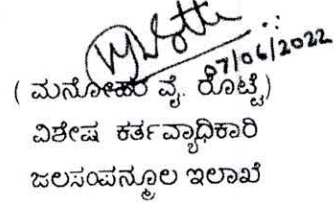 07/06/2022
( ಮನೋಹರ ವೈ. ರೊಟ್ಟಿ)
ವಿಶೇಷ ಕರ್ತವ್ಯಾಧಿಕಾರಿ
ಜಲಸಂಪನ್ಮೂಲ ಇಲಾಖೆ